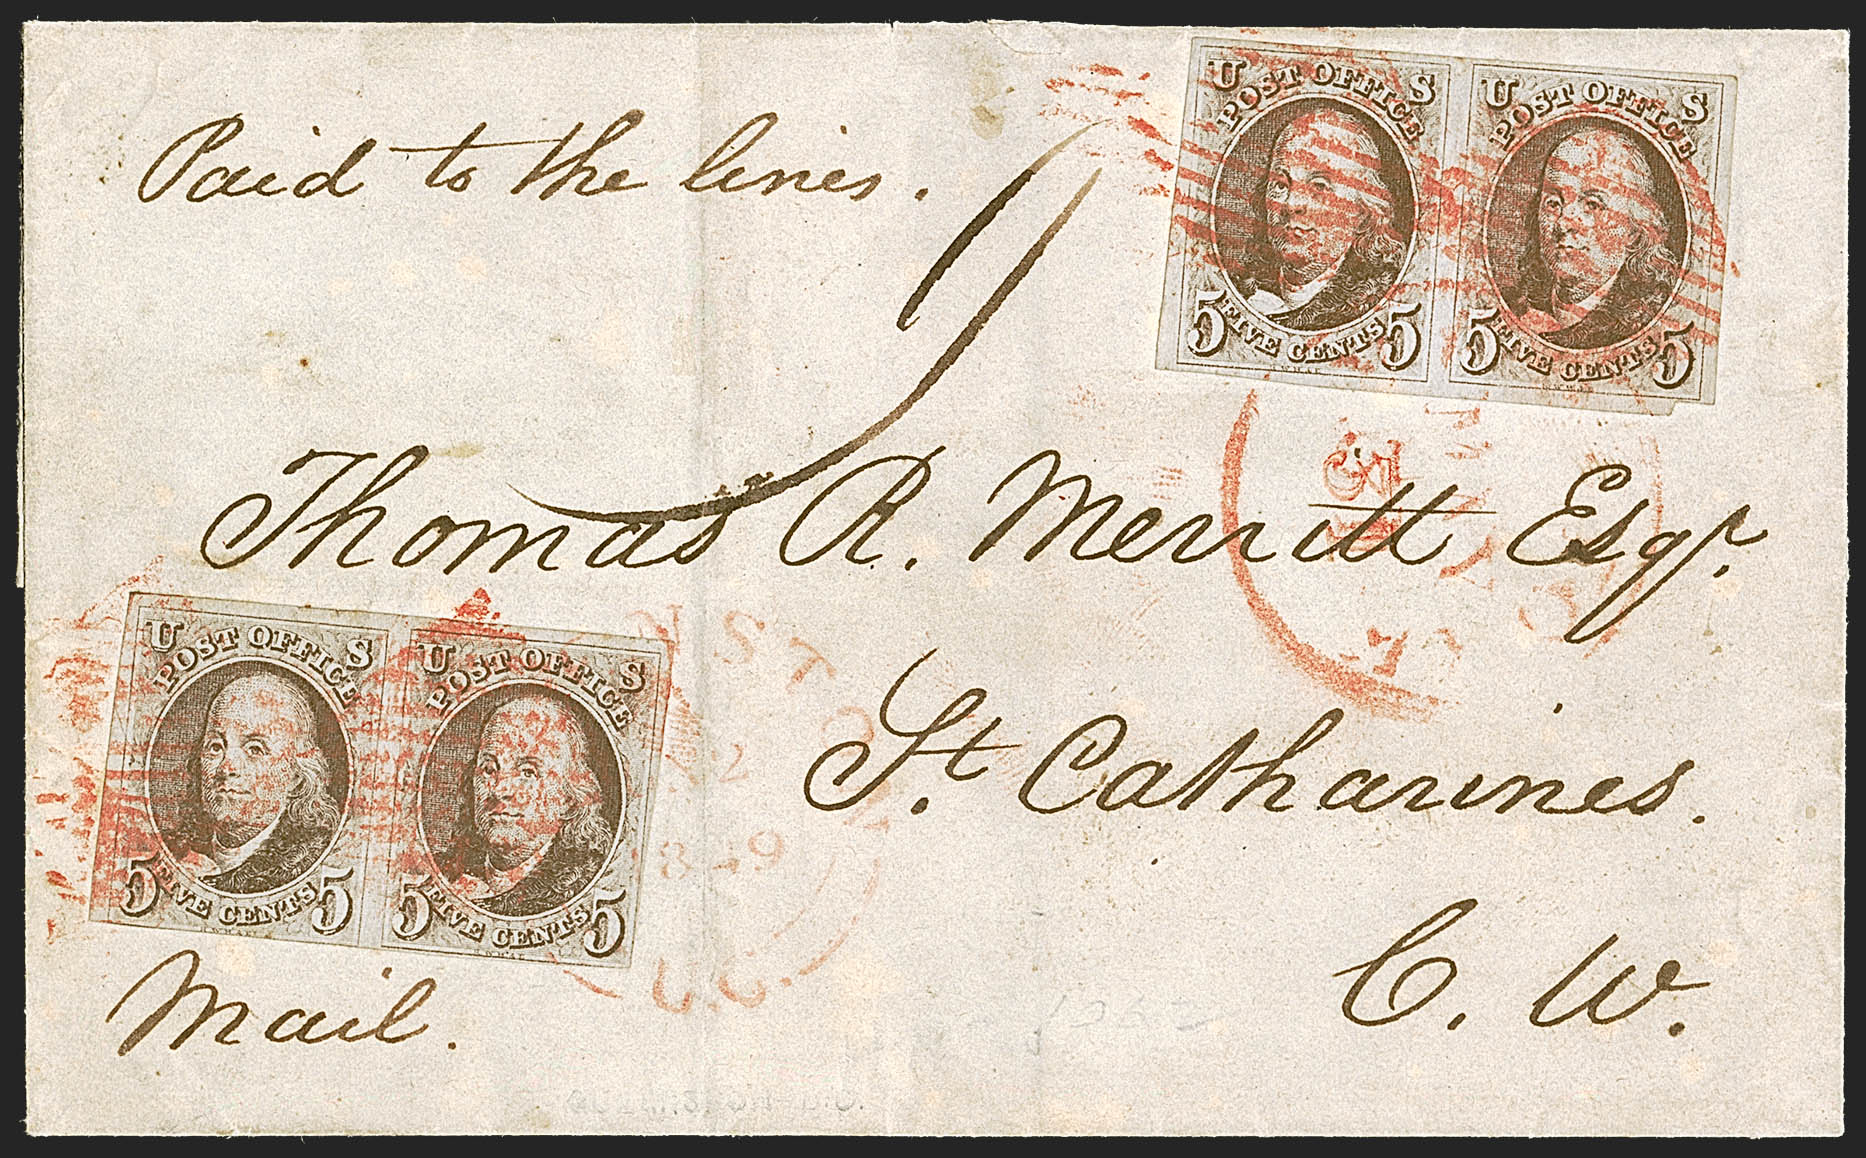 Paid to the lines.
U S
POST OFFICE
5 FIVE CENTS 5
U S
POST OFFICE
5 FIVE CENTS 5
Thomas R. Merritt Esqr.
St. Catharines.
C. W.
U S
POST OFFICE
5 FIVE CENTS 5
U S
POST OFFICE
5 FIVE CENTS 5
Mail.